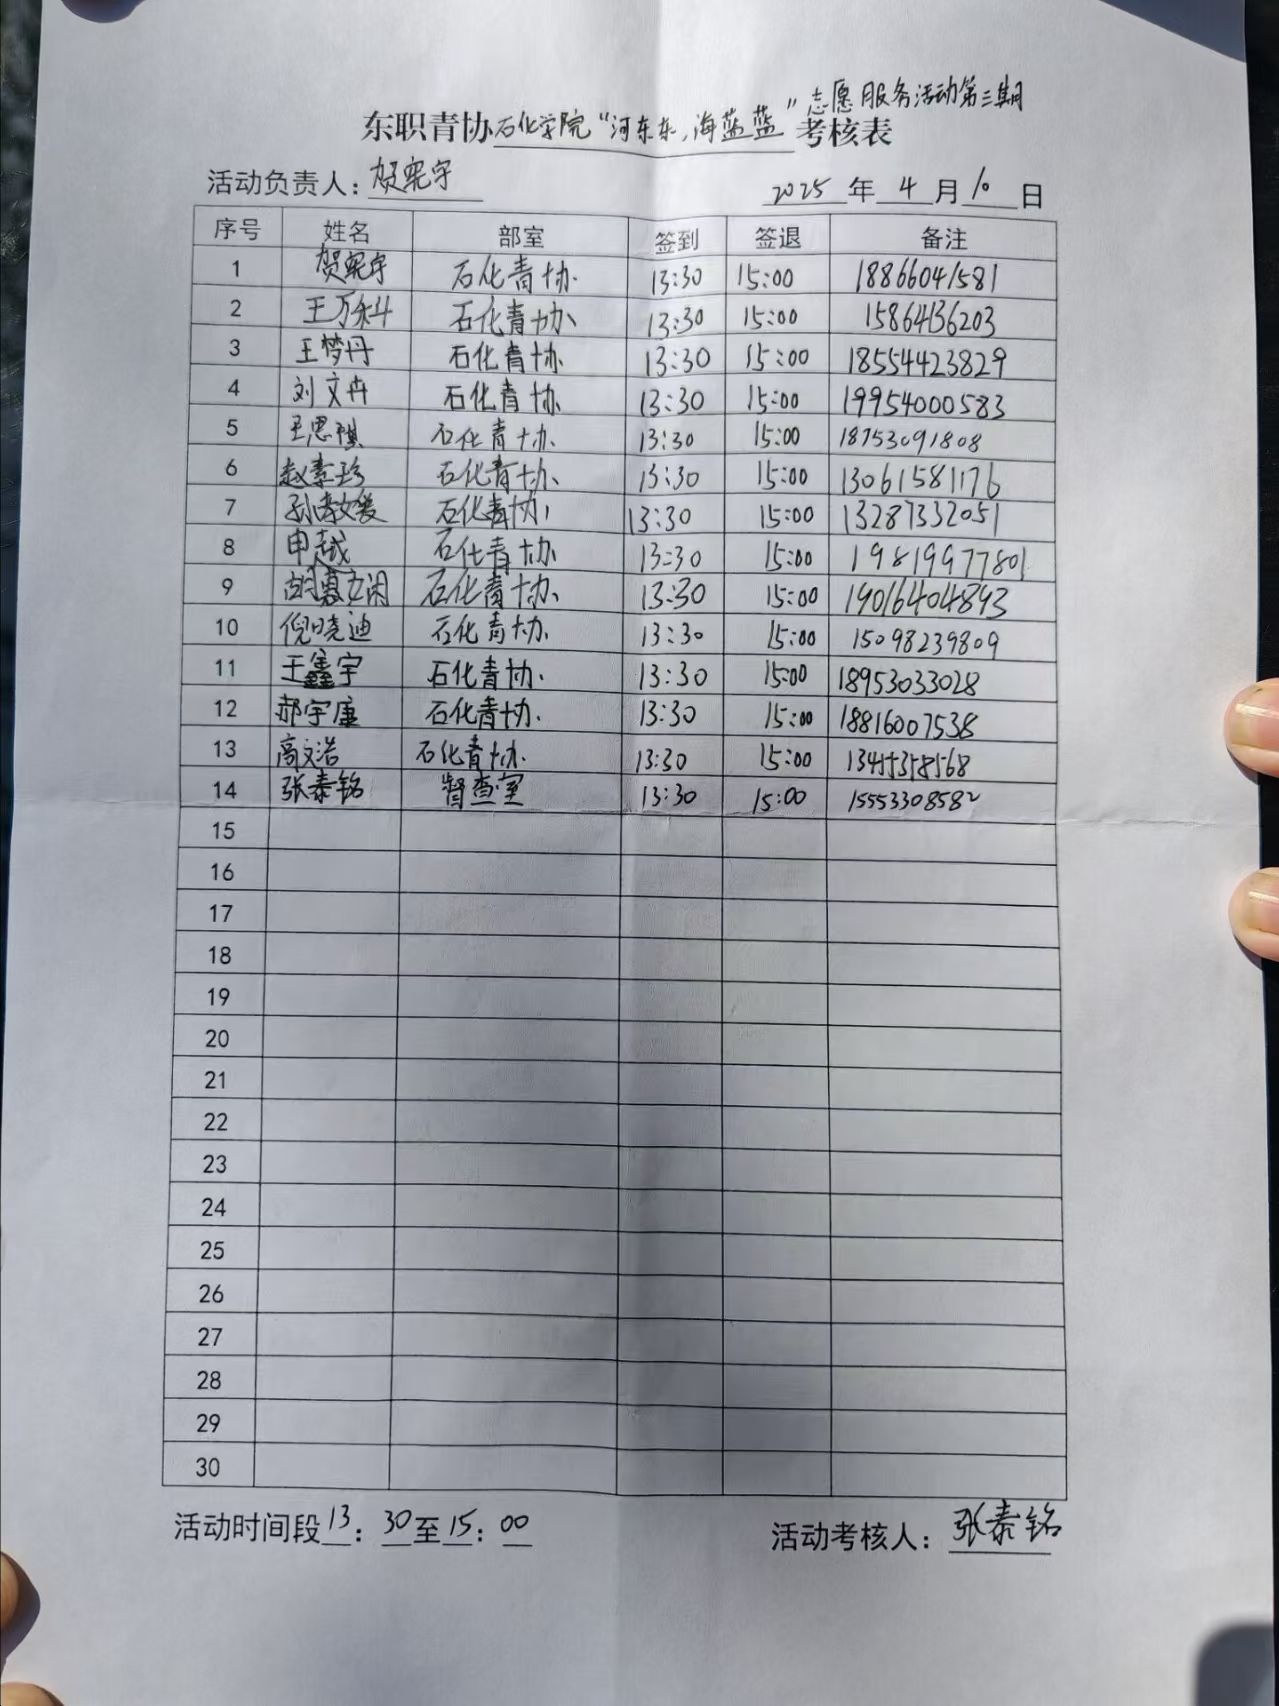 志愿服务活动第三期
东职青协石化学院“河东东,海蓝蓝”考核表
活动负责人:贺宪宇 2025年4月10日
序号 姓名 部室 签到 签退 备注
1 贺宪宇 石化青协 13:30 15:00 18866041581
2 王万科 石化青协 13:30 15:00 15864136203
3 王梦丹 石化青协 13:30 15:00 18554423829
4 刘文卉 石化青协 13:30 15:00 19954000583
5 王思琪 石化青协 13:30 15:00 18753091808
6 赵素珍 石化青协 13:30 15:00 13061581176
7 石化青协 13:30 15:00 13287332051
8 申越 石化青协 13:30 15:00 19819977801
9 石化青协 13:30 15:00 19016404893
10 倪晓迪 石化青协 13:30 15:00 15098239809
11 王鑫宇 石化青协. 13:30 15:00 18953033028
12 郝宇康 石化青协. 13:30 15:00 18816007538
13 高文浩 石化青协. 13:30 15:00
14 张泰铭 督查室 13:30 15:00 15553308582
15
16
17
18
19
20
21
22
23
24
25
26
27
28
29
30
活动时间段13:30至15:00 活动考核人:张泰铭